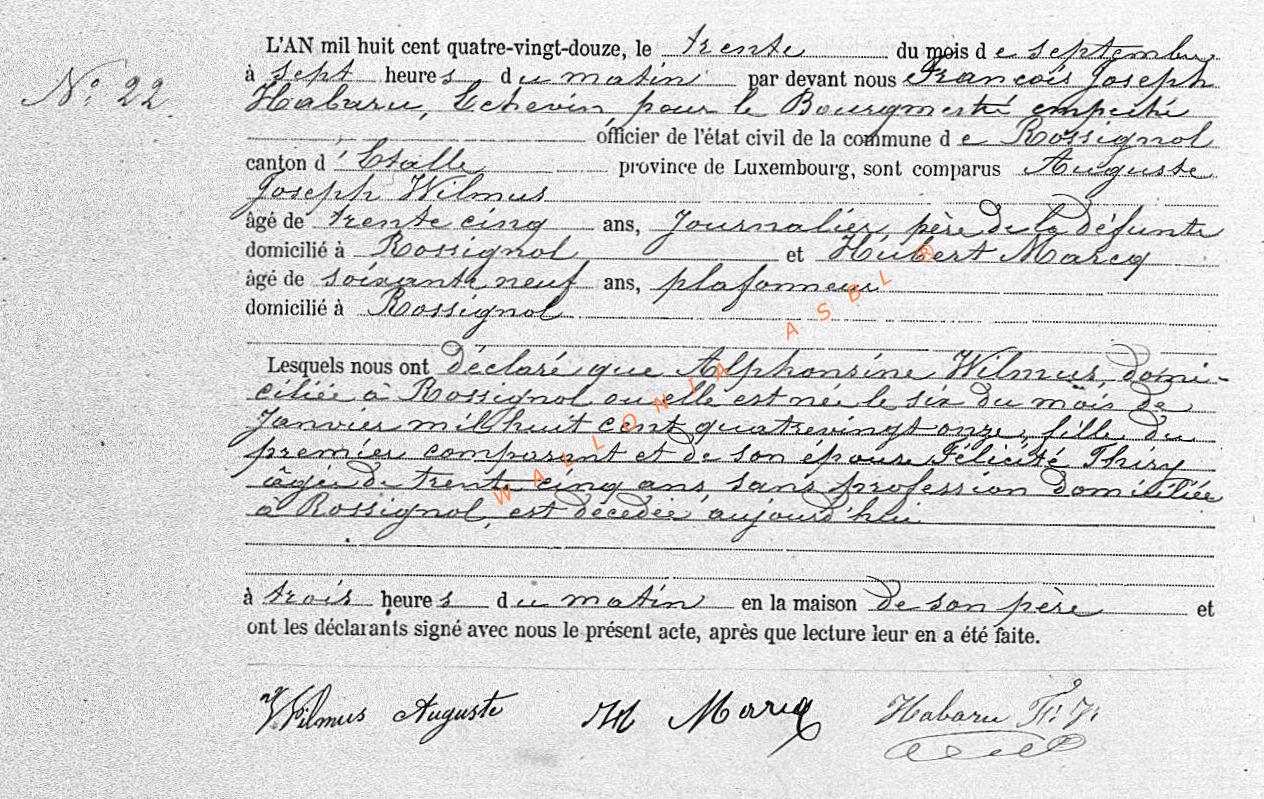 L'AN mil huit cent quatre-vingt-douze, le trente du mois de septembre
N° 22
à sept heures du matin par devant nous François Joseph
Habaru, Echevin pour le Bourgmestre empêché
officier de l'état civil de la commune de Rossignol
canton d'Etalle province de Luxembourg, sont comparus Auguste
Joseph Wilmus
âgé de trente cinq ans, Journalier, père de la défunte
domicilié à Rossignol et Hubert Marcq
âgé de soixante neuf ans, plafonneur
domicilié à Rossignol
Lesquels nous ont déclaré que Alphonsine Wilmus, domi-
ciliée à Rossignol ou elle est née le six du mois de
Janvier mil huit cent quatrevingt onze, fille du
premier comparant et de son épouse Félicité Thiry
âgée de trente cinq ans sans profession domiciliée
à Rossignol, est décédée aujourd'hui
à trois heures du matin en la maison de son père et
ont les déclarants signé avec nous le présent acte, après que lecture leur en a été faite.
Wilmus Auguste H Marcq Habaru F. J.
WALLONIA ASBL ®